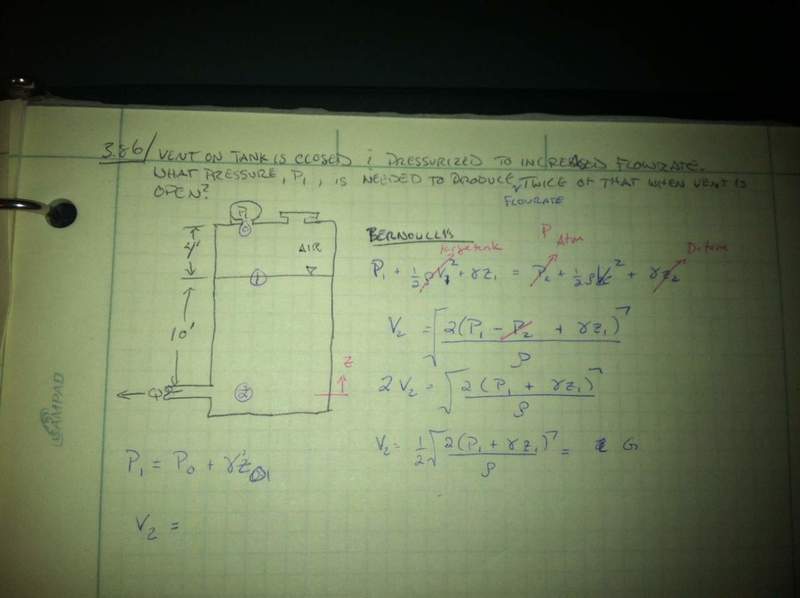 3.86/ VENT ON TANK IS CLOSED & PRESSURIZED TO INCREASED FLOWRATE.
WHAT PRESSURE, P1, IS NEEDED TO PRODUCE TWICE OF THAT WHEN VENT IS
FLOWRATE
OPEN?
P1
0
AIR
4'
1
10'
Q
2
z
BERNOULLIS
large tank
P Atm
Datum
P1 + 1/2 ρV1² + γz1 = P2 + 1/2 ρV2² + γz2
V2 = √(2(P1 - P2 + γz1)/ρ)
2V2 = √(2(P1 + γz1)/ρ)
V2 = 1/2 √(2(P1 + γz1)/ρ) =
P1 = P0 + γz
V2 =
AMPAD